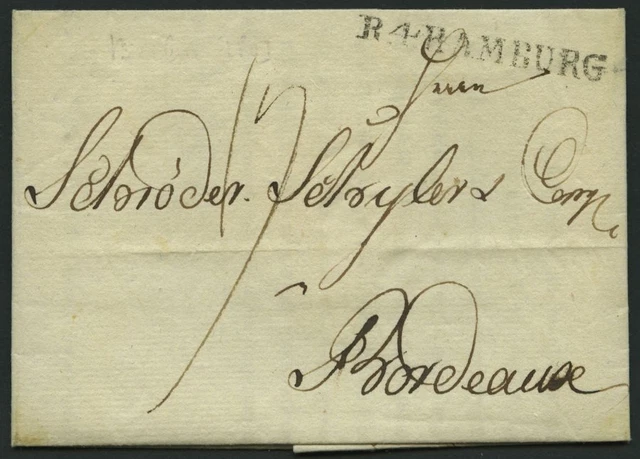 R.4.HAMBURG
Herrn
Schröder Schyler & Comp.
a
Bordeaux